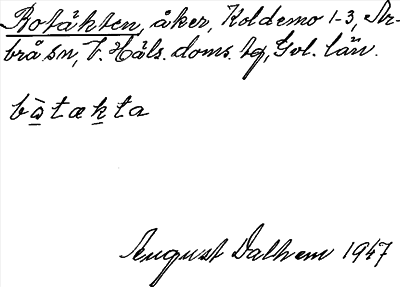 Botäkten, åker, Koldemo 1-3, Ar-
brå sn, V. Häls. doms. tg, Gvl. län.
bòtækta
August Dalhem 1947